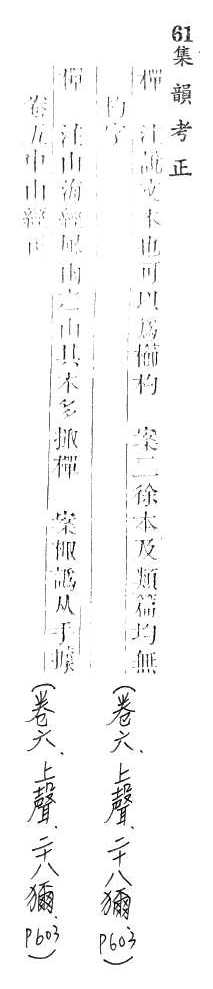 61 集韻考正
樿 注說文木也可以爲櫛杓 案二徐本及類篇均無 (卷六、上聲、二十八獮、P603)
杓字
樿 注山海經風雨之山其木多掫樿 案棷譌从手據 (卷六、上聲、二十八獮、P603)
卷五中山經正